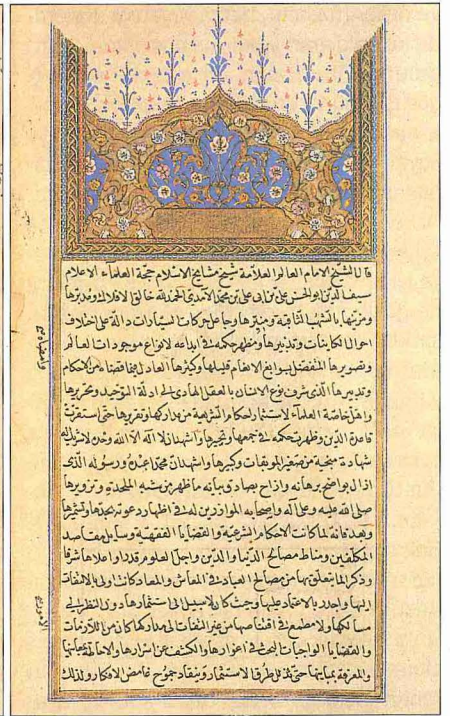 قال الشيخ الامام العالم العلامة شيخ مشايخ الاسلام حجة العلماء الاعلام
سيف الدين ابو الحسن على بن ابى على بن محمد الآمدى الحمد لله خالق الافلاك ومدبرها
ومزينها بالشهب الثاقبة ومنيرها وجاعل حركات السيارات دالة على اختلاف
احوال الكاينات وتدبيرها ومظهر حكمه فى ابداعه لانواع موجودات العالم
وتصويرها المتفضل بسوابغ الانعام قليلها وكثيرها العادل فيما قضاه من الاحكام
وتدبيرها الذى شرف نوع الانسان بالعقل الهادى الى ادلة التوحيد وتحريرها
واهل خاصة العلماء لاستثمار احكام الشريعة من مداركها وتقريرها حتى استقرت
قاعدة الدين وظهرت حكمه فى جمعها وتحبيرها واشهد ان لا اله الا الله وحده لا شريك له
شهادة منجية من صغير الموبقات وكبيرها واشهد ان محمدا عبده ورسوله الذى
ازال بواضح برهانه وازاح بصادق بيانه ما ظهر من شبه الملحدة وتزويرها
صلى الله عليه وعلى آله واصحابه الموازرين له فى اظهار دعوته بحدها وتشميرها
وبعد فانه لما كانت الاحكام الشرعية والقضايا الفقهية وسايل مقاصد
المكلفين ومناط مصالح الدنيا والدين واجل العلوم قدرا واعلاها شرفا
وذكرا لما يتعلق بها من مصالح العباد فى المعاش والمعاد كانت اولى بالالتفات
اليها واجدر بالاعتماد عليها وحيث كان لا سبيل الى استثمارها دون النظر فى
مسالكها ولا مطمع فى اقتناصها من غير التفات الى مداركها كان من اللازمات
والقضايا الواجبات البحث فى اغوارها والكشف عن اسرارها والاحاطة بمعانيها
والمعرفة بمبانيها حتى تذلل طرق الاستثمار وينقاد جموح غامض الافكار ولذلك